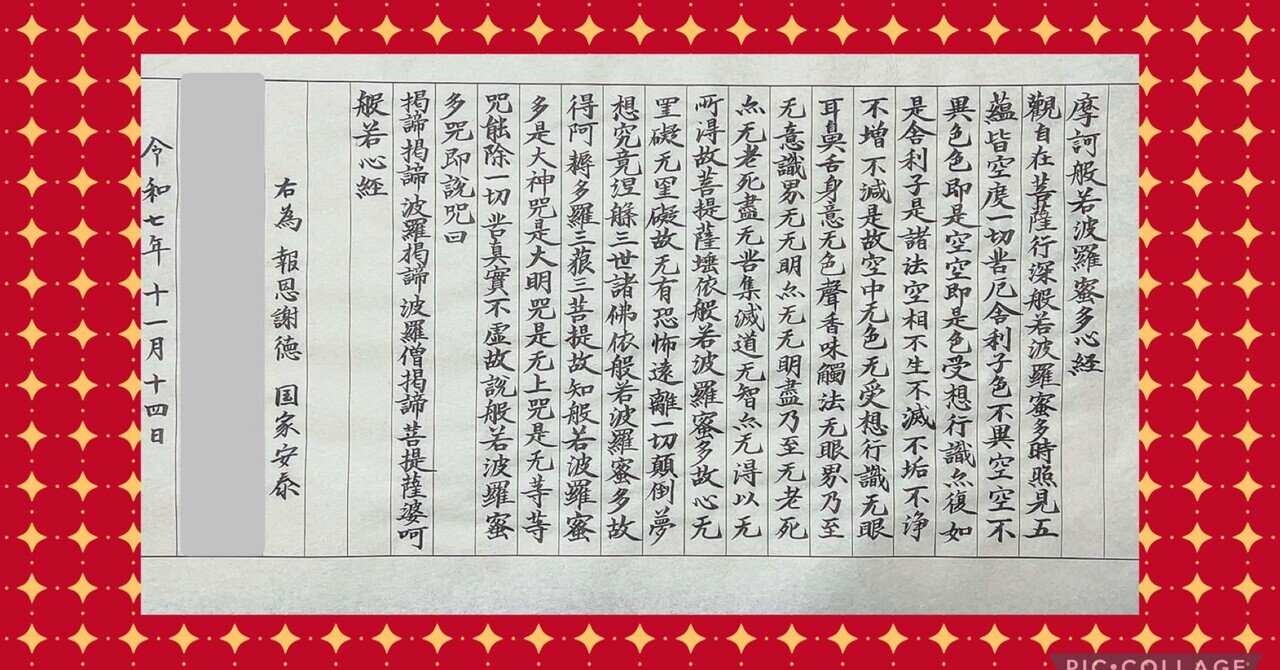 摩訶般若波羅蜜多心経
觀自在菩薩行深般若波羅蜜多時照見五
蘊皆空度一切苦厄舍利子色不異空空不
異色色即是空空即是色受想行識亦復如
是舍利子是諸法空相不生不滅不垢不浄
不增不減是故空中无色无受想行識无眼
耳鼻舌身意无色聲香味觸法无眼界乃至
无意識界无无明亦无无明盡乃至无老死
亦无老死盡无苦集滅道无智亦无得以无
所得故菩提薩埵依般若波羅蜜多故心无
罣礙无罣礙故无有恐怖遠離一切顛倒夢
想究竟涅槃三世諸佛依般若波羅蜜多故
得阿耨多羅三藐三菩提故知般若波羅蜜
多是大神咒是大明咒是无上咒是无等等
咒能除一切苦真實不虛故說般若波羅蜜
多咒即說咒曰
揭諦揭諦波羅揭諦波羅僧揭諦菩提薩婆呵
般若心経
右為 報恩謝徳 国家安泰
令和七年 十一月十四日
PIC•COLLAGE